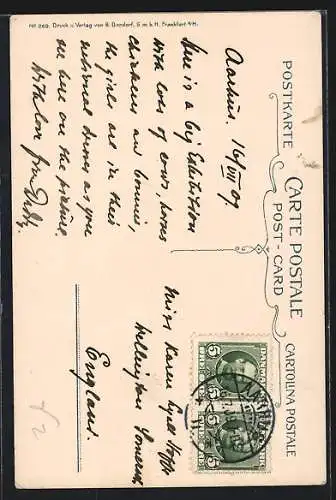 No 269. Druck u. Verlag von B. Dondorf, G. m. b. H. Frankfurt a/M.
POSTKARTE
CARTE POSTALE
POST-CARD
CARTOLINA POSTALE
Aarhus. 16/VII 09
Here is a big Exhibition
with lots of cows, horses
chickens and
the girls are in their
national dress as you
see here on the picture
With love from
Miss Karen
Wellington Somerset
England.
5 5
5 5
1/2